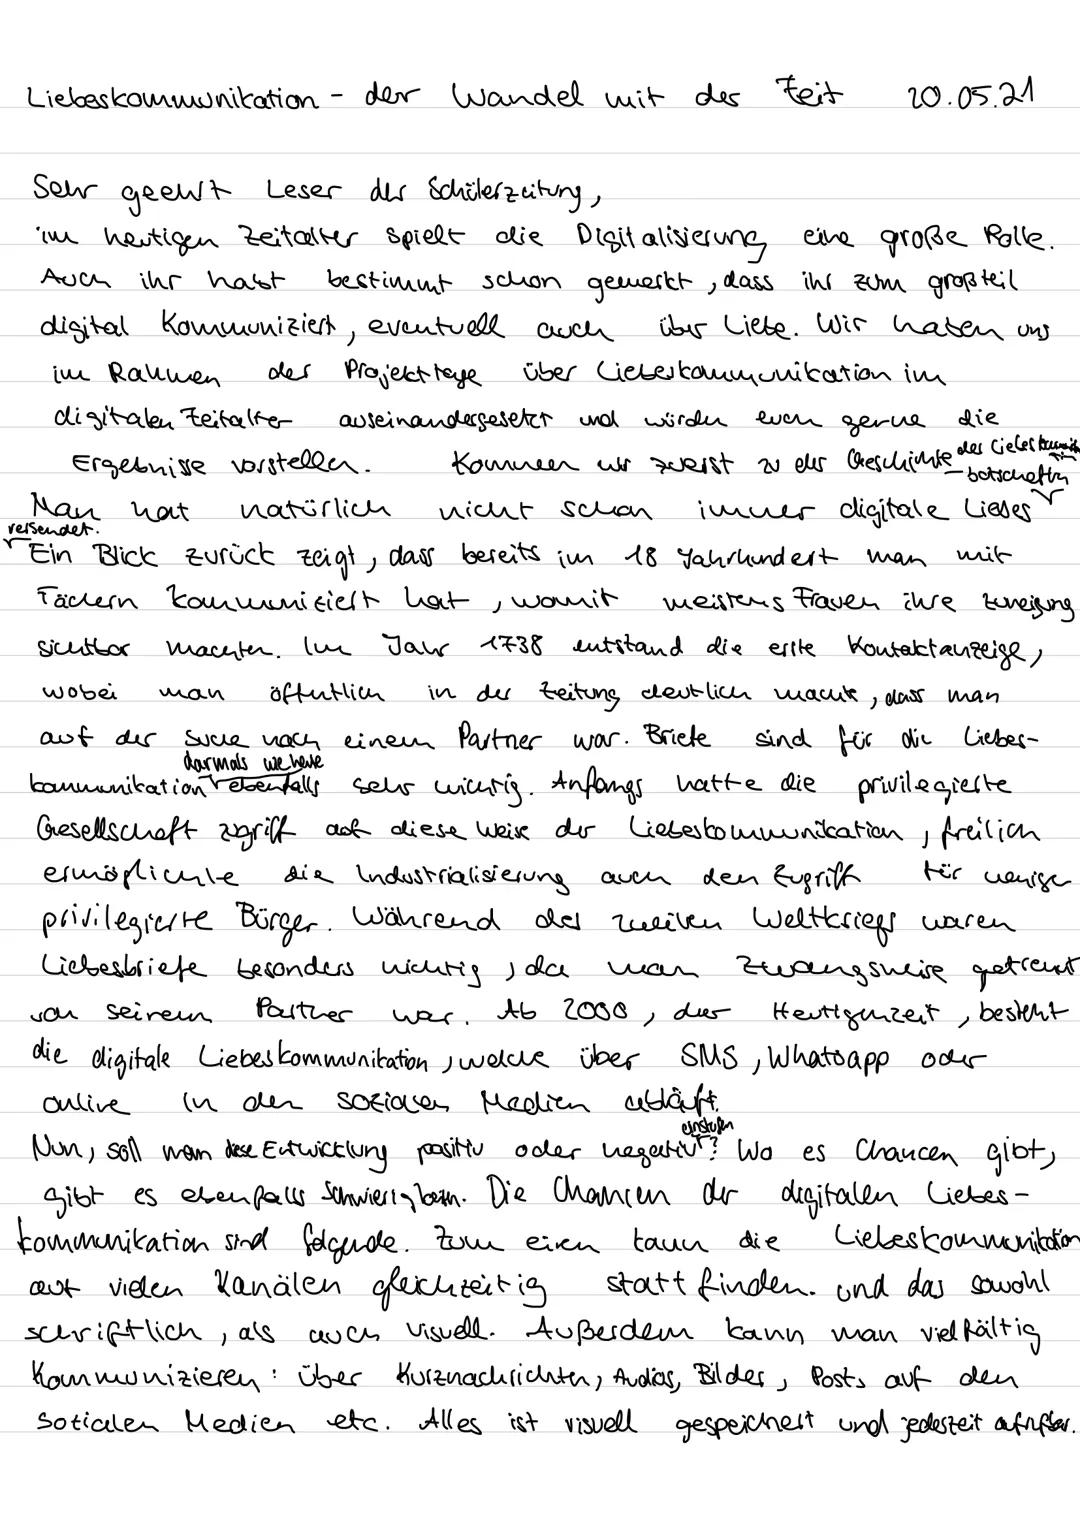 Liebeskommunikation - der Wandel mit der Zeit 20.05.21
Sehr geehrt Leser der Schülerzeitung,
im heutigen Zeitalter spielt die Digitalisierung eine große Rolle.
Auch ihr habt bestimmt schon gemerkt, dass ihr zum großteil
digital Kommuniziert, eventuell auch über Liebe. Wir haben uns
im Rahmen der Projekttage über Liebeskommunikation im
digitalen Zeitalter auseinandergesetzt und würden euch gerne die
Ergebnisse vorstellen. Kommen wir zuerst zu der Geschichte der
Man hat natürlich nicht schon immer digitale Liebesbotschaften
versendet.
Ein Blick zurück zeigt, dass bereits im 18 Jahrhundert man mit
Fächern kommuniziert hat, womit meistens Frauen ihre Zuneigung
sichtbar machten. Im Jahr 1738 entstand die erste Kontaktanzeige,
wobei man öffentlich in der Zeitung deutlich machte, dass man
auf der Suche nach einem Partner war. Briefe sind für die Liebes-
darmals wie heute
kommunikation ebenfalls sehr wichtig. Anfangs hatte die privilegierte
Gesellschaft zugriff auf diese Weise der Liebeskommunikation, freilich
ermöglichte die Industrialisierung auch den Zugriff für weniger
privilegierte Bürger. Während des zweiten Weltkriegs waren
Liebesbriefe besonders wichtig, da man Zwangsweise getrennt
von seinem Partner war. Ab 2000, der Heutigenzeit, besteht
die digitale Liebeskommunikation, welche über SMS, Whatsapp oder
online in den sozialen Medien abläuft.
einstufen
Nun, soll man diese Entwicklung positiv oder negativ? Wo es Chancen gibt,
gibt es ebenfalls Schwierigkeiten. Die Chancen der digitalen Liebes-
kommunikation sind folgende. Zum einen kann die Liebeskommunikation
auf vielen Kanälen gleichzeitig stattfinden. und das sowohl
schriftlich, als auch visuell. Außerdem kann man vielfältig
Kommunizieren: über Kurznachrichten, Audios, Bilder, Posts auf den
sozialen Medien etc. Alles ist visuell gespeichert und jederzeit aufrufbar.